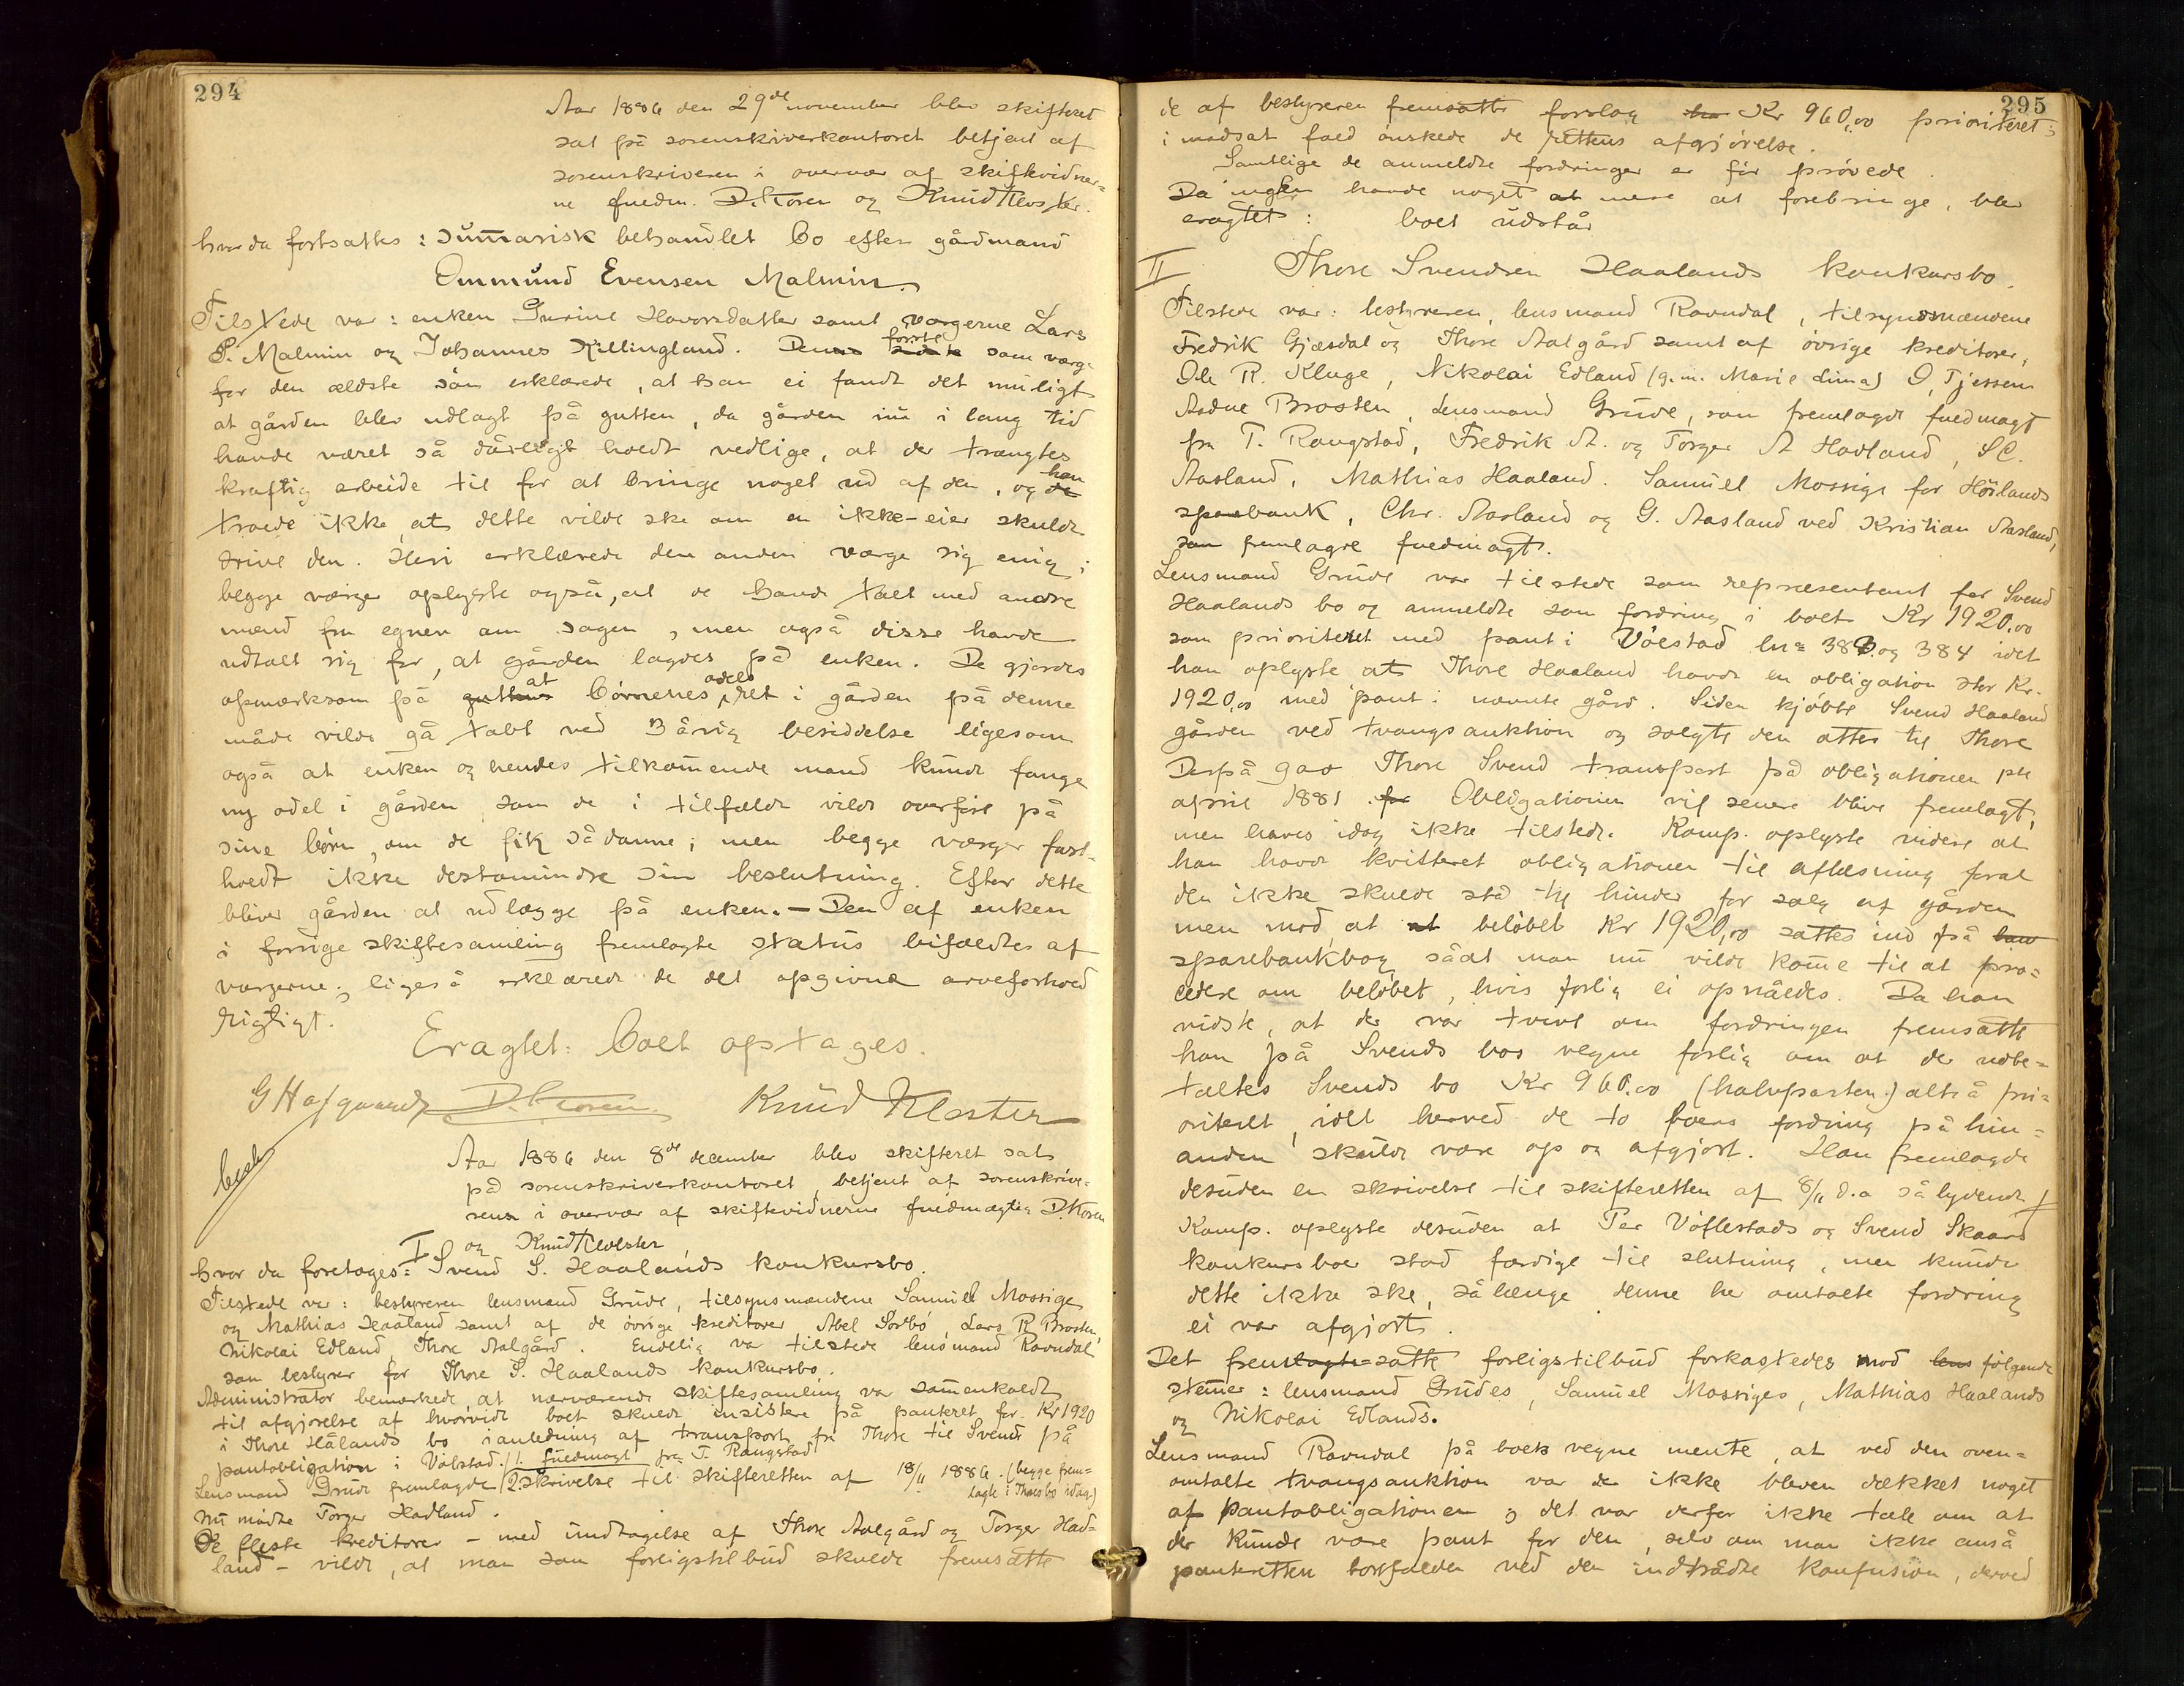 294
Aar 1886 den 29de november blev skifteret
sat på sorenskriverkontoret betjent af
sorenskriveren i overvær af skiftevidner=
ne fuedm. D. Koren og Knud Kloster.
hvor da fortsattes: summarisk behandlet bo efter gårdmand
Ommund Evensen Malmin.
Tilstede var: enken Gurine Havorsdatter samt værgerne Lars
P. Malmin og Johannes Killingland. Den første som værge
for den ældste søn erklærede, at han ei fandt det muligt
at gården blev udlagt på gutten, da gården nu i lang tid
havde været så dårligt holdt vedlige, at der trængtes
kraftig arbeide til for at bringe noget ud af den, og han
troede ikke, at dette vilde ske om en ikke-eier skulde
drive den. Heri erklærede den anden værge sig enig;
begge værger oplyste også, at de havde talt med andre
mænd fra egnen om sagen, men også disse havde
udtalt sig for, at gården lagdes på enken. De gjordes
opmærksom på guttens at børnenes odelsret i gården på denne
måde vilde gå tabt ved 3 årig besiddelse ligesom
også at enken og hendes tilkommende mand kunde fange
ny odel i gården, som de i tilfælde vilde overføre på
sine børn, om de fik sådanne; men begge værger fast-
holdt ikke destomindre sin beslutning. Efter dette
bliver gården at udlægge på enken. — Den af enken
i forrige skiftesamling fremlagte status bifaldtes af
værgerne; ligeså erklærede de det opgivne arveforhold
rigtigt.
Eragtet: Boet optages.
G Hafgaard D. Koren. Knud Kloster
besk
Aar 1886 den 8de december blev skifteret sat
på sorenskriverkontoret, betjent af sorenskrive=
seren i overvær af skiftevidnerne fuldmægtig D. Koren
og Knud Kloster
hvor da foretoges: I Svend S. Haalands konkursbo.
Tilstede var: bestyreren lensmand Grude, tilsynsmændene Samuel Mossige
og Mathias Haaland samt af de øvrige kreditorer Abel Sørbø, Lars R Brosten,
Nikolai Edland, Thore Aalgård. Endelig var tilstede lensmand Ravndal
som bestyrer for Thore S. Haalands konkursbo.
Administrator bemærkede, at nærværende skiftesamling var sammenkaldt
til afgjørelse af hvorvidt boet skulde insistere på panteret for Kr 1920
i Thore Hålands bo i anledning af transport fra Thore til Svend på
pantobligation i Vølstad.
Lensmand Grude fremlagde 1. fuldmagt fra T. Rangstad 2. Skrivelse til skifteretten af 18/11 1886. (begge frem=
lagte i Thores bo idag)
Nu mødte Torger Hadland.
De fleste kreditorer – med undtagelse af Thore Aalgård og Torger Had=
land – vilde, at man som forligstilbud skulde fremsætte
295
de af bestyreren fremsatte forslag Kr 960,00 prioriteret;
i modsat fald ønskede de rettens afgjørelse.
Samtlige de anmeldte fordringer er før prøvede.
Da ingen havde noget mere at forebringe, blev
eragtet: boet udstår
II Thore Svendsen Haalands konkursbo.
Tilstede var: bestyreren, lensmand Ravndal, tilsynsmændene
Fredrik Gjæsdal og Thore Aalgård samt af øvrige kreditorer,
Ole R. Kluge, Nikolai Edland (g.m. Marie Lima) O. Tjessem
Aadne Brosten, Lensmand Grude, som fremlagde fuldmagt
fra T. Rangstad, Fredrik A. og Torger A Hadland, S C.
Aasland, Mathias Haaland. Samuel Mossige for Høilands
sparebank, Chr. Aasland og G. Aasland ved Kristian Aasland,
som fremlagde fuldmagt.
Lensmand Grude var tilstede som repræsentant for Svend
Haalands bo og anmeldte som fordring i boet Kr 1920,00
som prioriteret med pant i Vølstad ln= 383 og 384 idet
han oplyste at Thore Haaland havde en obligation stor Kr.
1920,00 med pant i nævnte gård. Siden kjøbte Svend Haaland
gården ved tvangsauktion og solgte den atter til Thore
Derpå gav Thore Svend transport på obligationen
april 1881. Obligationen vil senere blive fremlagt,
men haves idag ikke tilstede. Komp. oplyste videre at
han havde kvitteret obligationen til aflæsning foral
den ikke skulde stå til hinder for salg af gården
men mod, at beløbet Kr 1920,00 sattes ind på
sparebankbog sådt man nu vilde komme til at pro=
cedere om beløbet, hvis forlig ei opnåedes. Da han
vidste, at der var tvivl om fordringen fremsatte
han på Svends bos vegne forlig om at der udbe=
taltes Svends bo Kr 960.00 (halvparten) altså pri=
oriteret, idet herved de to boers fordring på hin=
anden skulde være op og afgjort. Han fremlagde
desuden en skrivelse til skifteretten af 8/11 d.a så lydende
Komp. oplyste desuden at Per Vølstads og Svend Skaars
konkursboer stod færdige til slutning, men kunde
dette ikke ske, sålænge denne her omtalte fordring
ei var afgjort.
Det fremsatte forligstilbud forkastedes mod følgende
stemmer: lensmand Grudes, Samuel Mossiges, Mathias Haalands
og Nikolai Edlands.
Lensmand Ravndal på boets vegne mente, at ved den oven=
omtalte tvangsauktion var der ikke bleven dækket noget
af pantobligationen og det var derfor ikke tale om at
der kunde være pant for den, selv om man ikke anså
panteretten bortfalden ved den indtrådte konfusion, derved